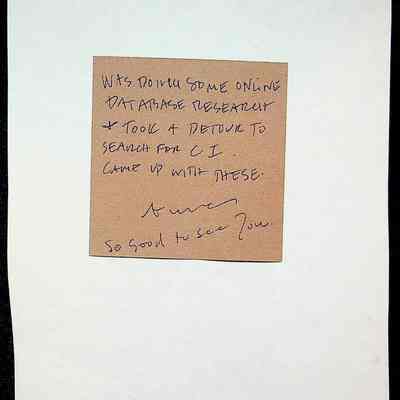 WAS DOING SOME ONLINE
DATABASE RESEARCH
+ TOOK A DETOUR TO
SEARCH FOR C I.
CAME UP WITH THESE.
So good to see you.